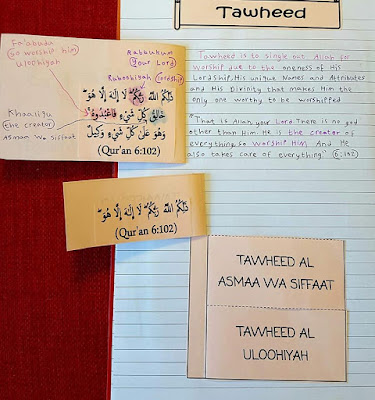 Tawheed
Fa'abudu
so worship him
uloohiyah
Rabbukum
your Lord
Ruboobiyah (Lordship)
ذَٰلِكُمُ اللَّهُ رَبُّكُمْ ۖ لَا إِلَٰهَ إِلَّا هُوَ ۖ
خَالِقُ كُلِّ شَيْءٍ فَاعْبُدُوهُ ۚ
وَهُوَ عَلَىٰ كُلِّ شَيْءٍ وَكِيلٌ
(Qur'an 6:102)
Khaaliqu
the creator
Asmaa Wa Siffaat
Tawheed is to single out Allah for
worship due to the oneness of His
Lordship, His unique Names and Attributes
and His Divinity that makes Him the
only one worthy to be worshipped
"That is Allah, your Lord. There is no god
other than Him. He is the creator of
everything, so worship Him. And He
also takes care of everything." 6:102
ذَٰلِكُمُ اللَّهُ رَبُّكُمْ ۖ لَا إِلَٰهَ إِلَّا هُوَ ۖ
(Qur'an 6:102)
TAWHEED AL
ASMAA WA SIFFAAT
TAWHEED AL
ULOOHIYAH